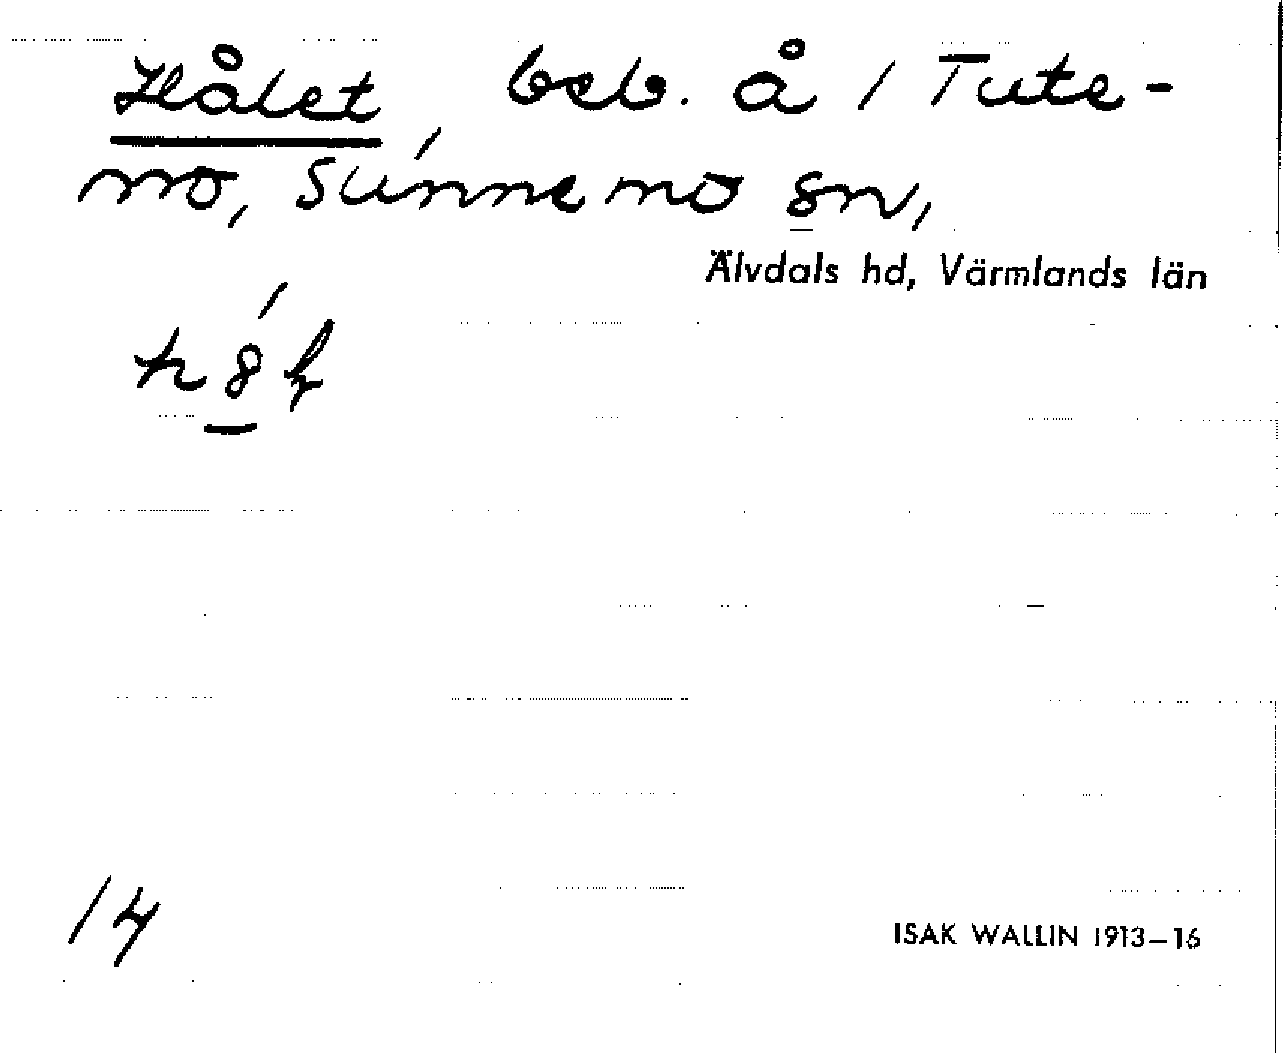 Hålet, beb. å 1 Tute-
mo, Sunnemo sn,
Älvdals hd, Värmlands län
14
ISAK WALLIN 1913–16